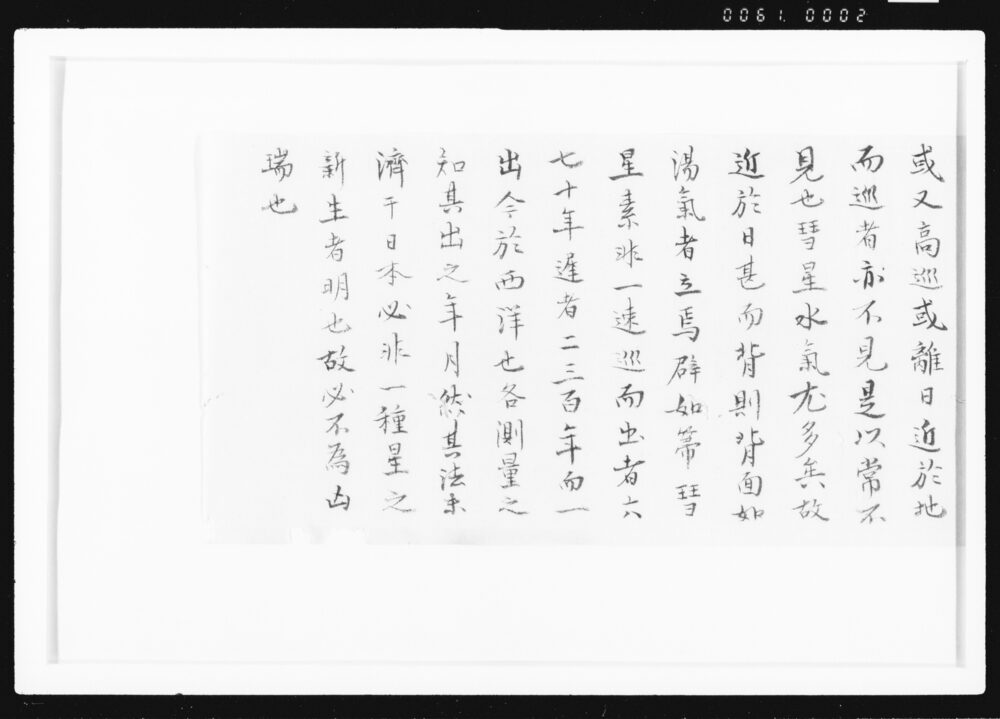 0061. 0002
或又高巡或離日近於地
而巡者亦不見是以常不
見也彗星水氣尤多矣故
近於日甚而背則背面如
湯氣者立焉辟如箒彗
星素非一速巡而出者六
七十年遲者二三百年而一
出今於西洋也各測量之
知其出之年月然其法未
濟于日本必非一種星之
新生者明也故必不為凶
瑞也